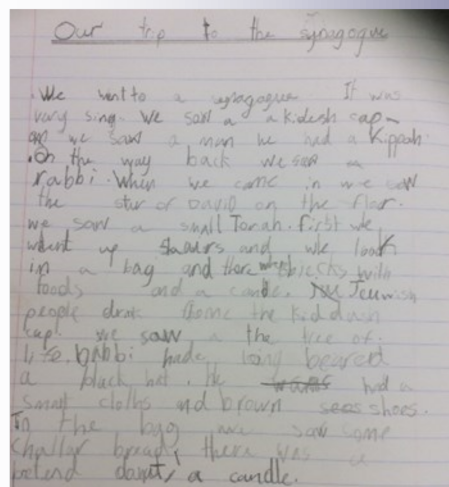 Our trip to the synagogue
We went to a synagogue. It was
vary sing. we saw a a kidesh cap
we saw a man he had a Kippah.
.On the way back we saw a
rabbi. When we came in we saw
the star of David on the floor.
we saw a small Torah. first we
whent up and we look
in a bag and there with
foods and a candle. Jeuwish
people drink the kiddush
cup. we saw a the tree of
life. Rabbi had a long beared
a black hat. He had a
small cloths and brown shoes.
In the bag we saw some
challar bread, there was a
pretend a candle.